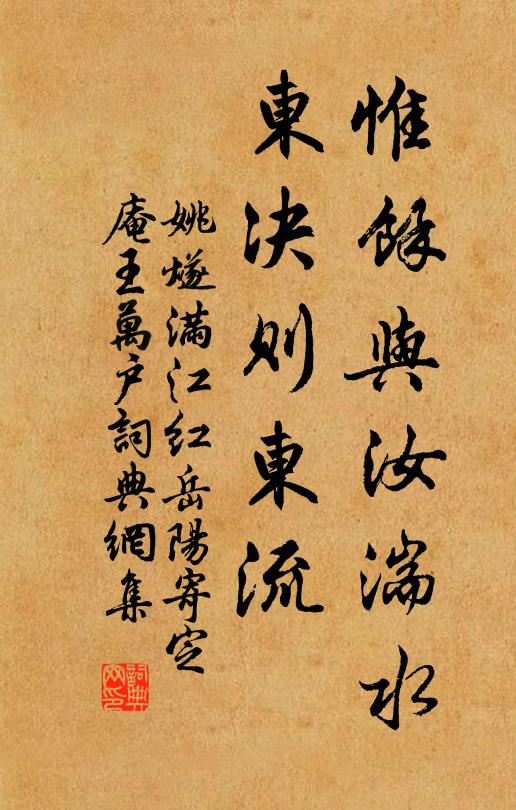 惟餘與汝湍水
東決則東流
姚燧滿江紅岳陽寄定
庵王萬户詞典網集
詞典网印